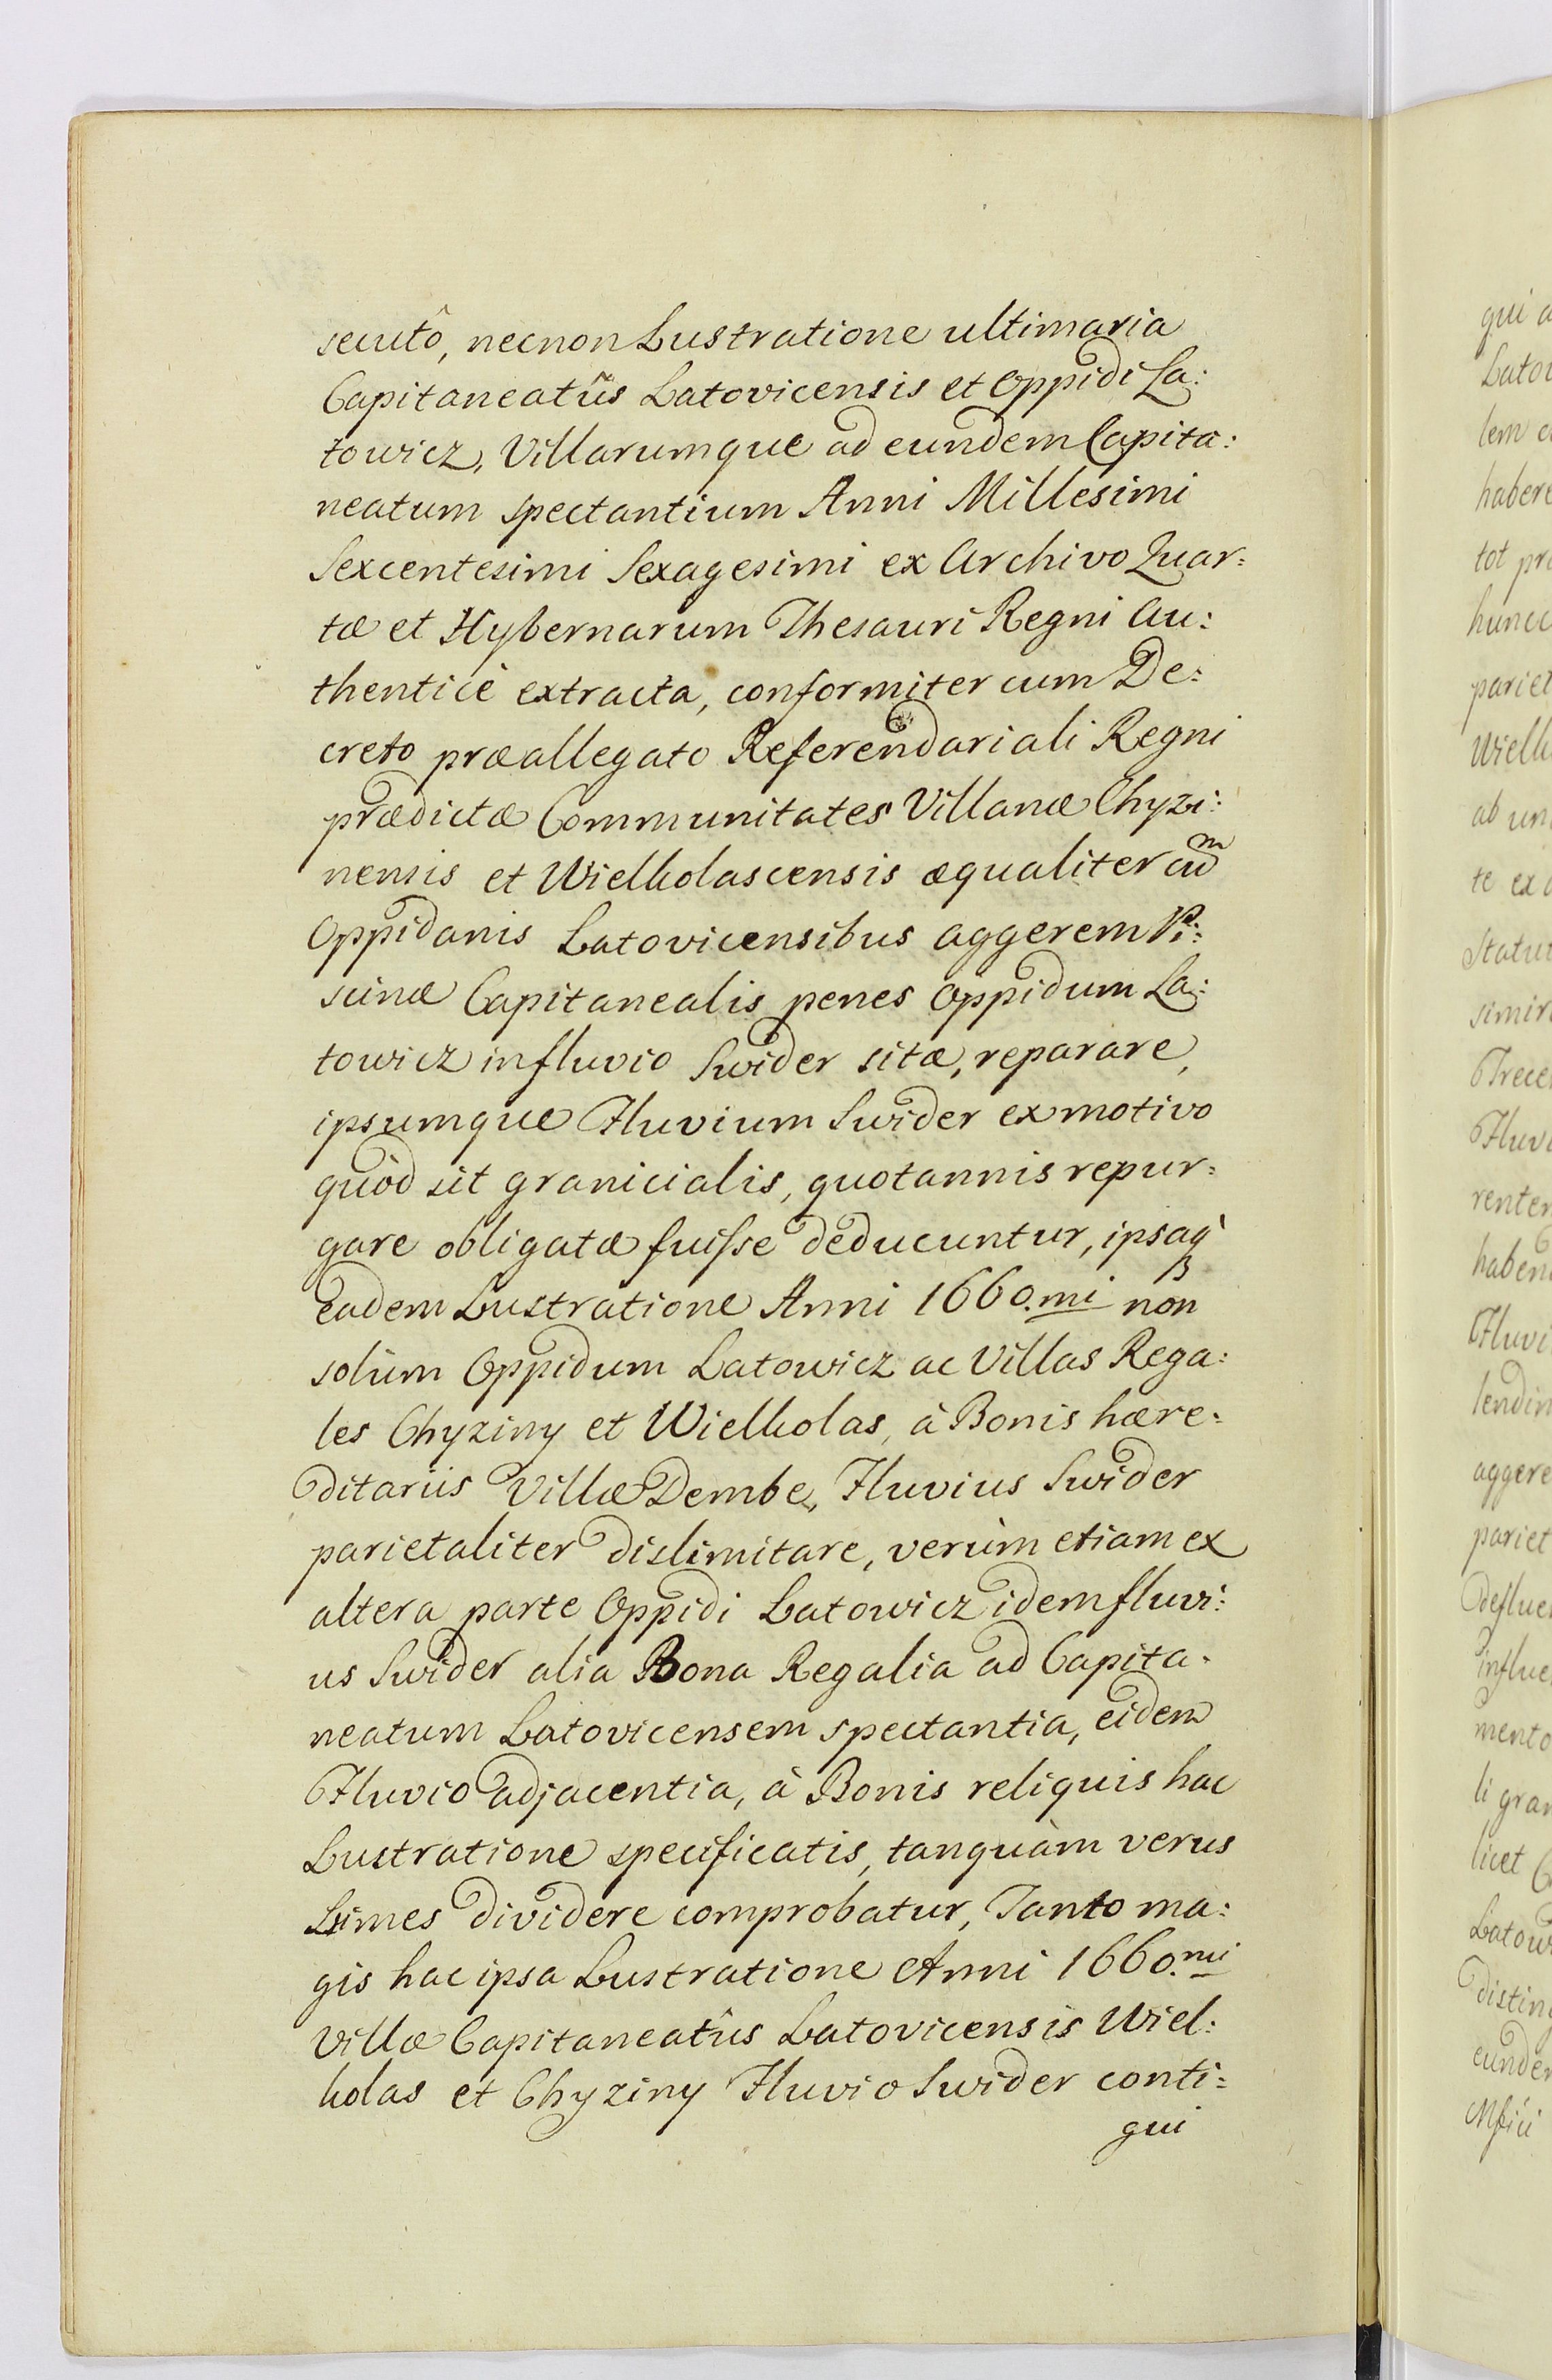 secutô, necnon Lustratione ultimaria
Capitaneatûs Latovicensis et Oppidi La:
towicz, Villarumque ad eundem Capita:
neatum spectantium Anni Millesimi
Sexcentesimi Sexagesimi ex Archivo Quar:
tæ et Hybernarum Thesauri Regni Au:
thenticè extracta, conformiter cum De:
creto præallegato Referendariali Regni
prædictæ Communitates Villanæ Chyzi:
nensis et Wielholascensis æqualiter cum
Oppidanis Latovicensibus aggerem Pi:
scinæ Capitanealis penes Oppidum La:
towicz in fluvio Swider sitæ, reparare,
ipsumque Fluvium Swider ex motivo
quòd sit granicialis, quotannis repur:
gare obligatæ fuisse deducuntur, ipsaq́
eadem Lustratione Anni 1660.mi non
solùm Oppidum Latowicz ac Villas Rega:
les Chyziny et Wielholas, à Bonis hære:
ditariis Villæ Dembe, Fluvius Swider
parietaliter dislimitare, verùm etiam ex
altera parte Oppidi Latowicz idem fluvi:
us Swider alia Bona Regalia ad Capita:
neatum Latovicensem spectantia, eidem
Fluvio adjacentia, à Bonis reliquis hac
Lustratione specificatis, tanquàm verus
Limes dividere comprobatur, Tanto ma:
gis hac ipsa Lustratione Anni 1660.mi
Villæ Capitaneatûs Latovicensis Wiel:
holas et Chyziny Fluvio Swider conti:
gui
qui a
Latov
habere
tot
Wielh
ab
te ex
aggere
pariet
mento
li gran
licet